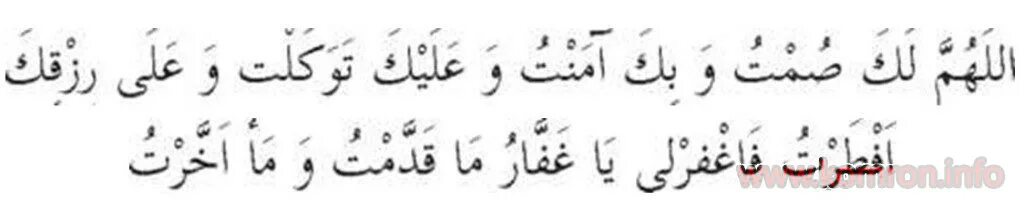 اللَهُمَّ لَكَ صُمْتُ وَ بِكَ آمَنْتُ وَ عَلَيْكَ تَوَكَلْت وَ عَلَى رِزْقِكَ
اَفْطَرْتُ فَاغْفِرْلِى يَا غَفَّارُ مَا قَدَّمْتُ وَ مَأ اَخَّرْتُ
www.komron.info